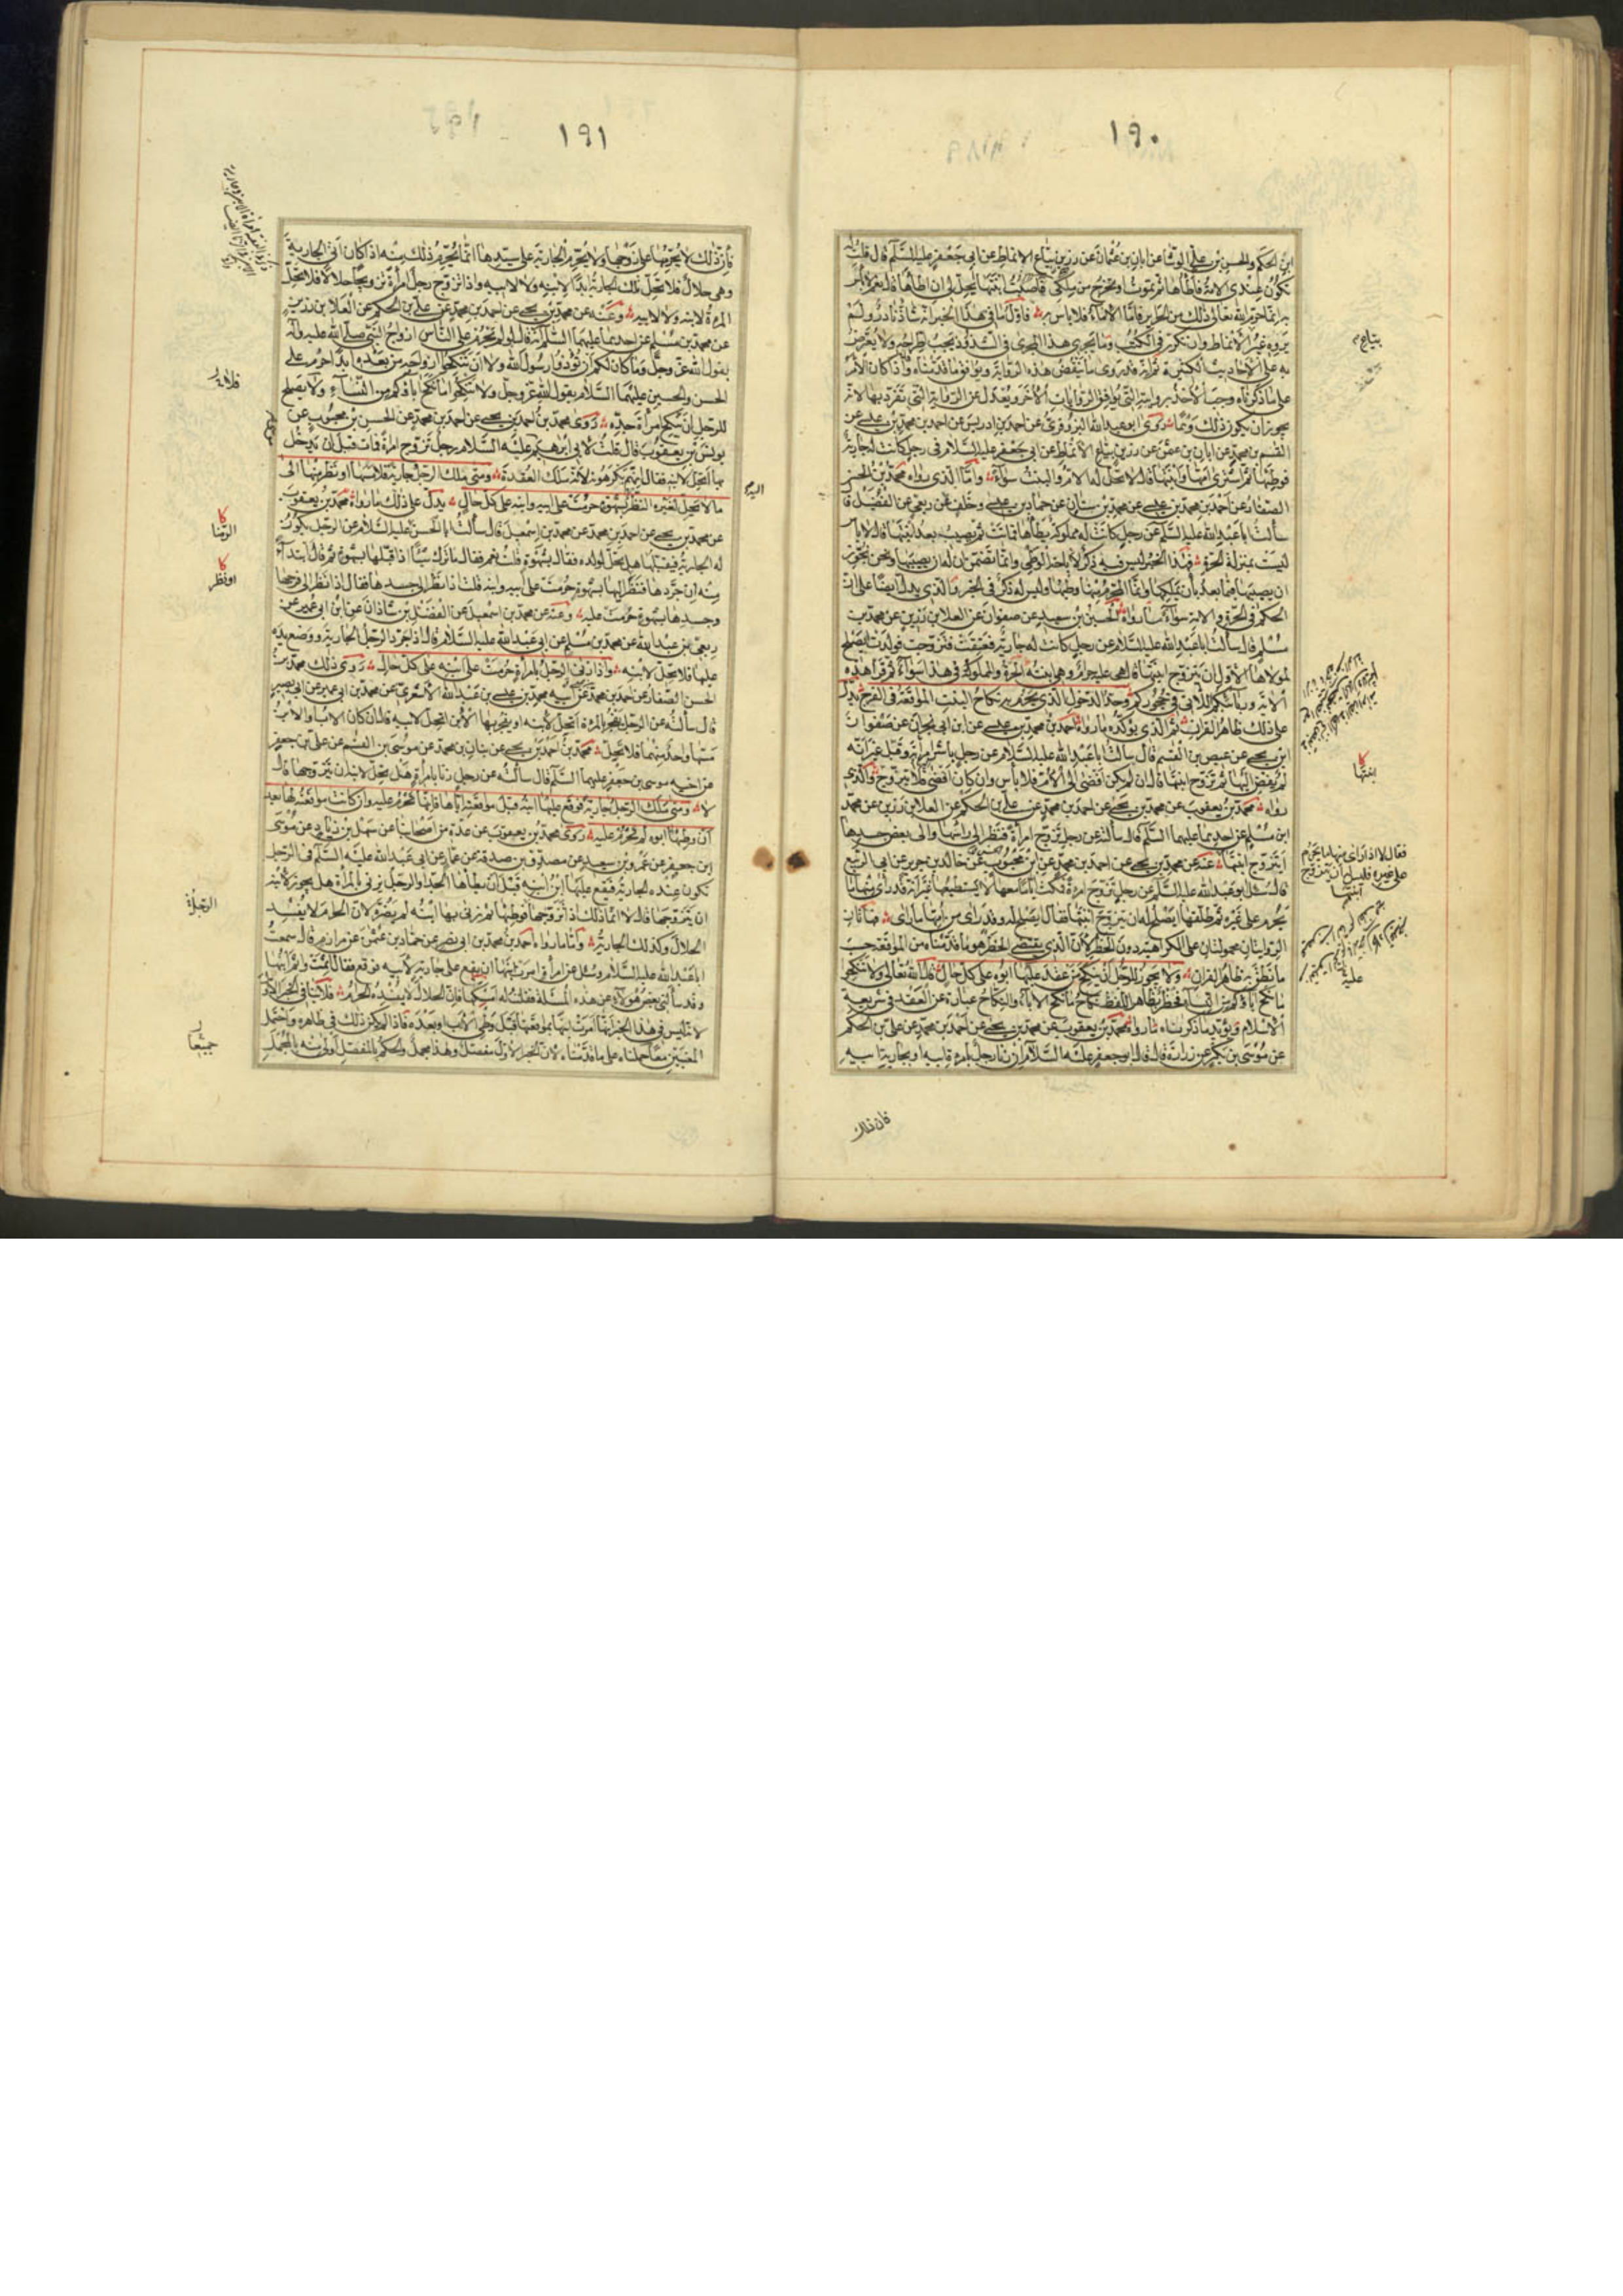 ١٩٠
ابن الحكم والحسن بن على الوشا عن ابان بن عثمان عن رزين بياع الانماط عن ابى جعفر عليه السلم قال قلت له
تكون عندى الامة فاطأها ثم تموت او تخرج من ملكى فاصيب ابنتها يحل لى ان اطأها قال نعم لا باس
به انما حرم الله تعالى ذلك من الحراير فاما الاماء فلا باس به فاول ما فى هذا الخبر انه شاذ نادر ولم
يروه غير الانماط وان تكرر فى الكتب وما يجرى هذا المجرى فى الشذوذ يجب اطراحه ولا يعترض
به على الاحاديث الكثيرة ثم انه قد روى ما ينقض هذه الرواية ويوافق ما قدمناه واذا كان الامر
على ما ذكرناه وجب الاخذ بروايته التى توافق الروايات الاخر ويعدل عن الرواية التى تفرد بها لانه
يجوز ان يكون ذلك وهما روى ابو عبد الله البزوفرى عن احمد بن ادريس عن احمد بن محمد بن عيسى عن
القسم بن محمد عن ابان بن عثمن عن رزين بياع الانماط عن ابى جعفر عليه السلام فى رجل كانت له جارية
فوطئها ثم اشترى امها او ابنتها قال لا تحل له الام والبنت سواء واما الذى رواه محمد بن الحسن
الصفار عن احمد بن محمد بن عيسى عن محمد بن سنان عن حماد بن عيسى وخلف عن ربعى عن الفضيل قال
سألت ابا عبد الله عليه السلم عن رجل كانت له مملوكة يطأها فماتت ثم يصيب بعد ابنتها قال لا باس
ليست بمنزلة الحرة فهذا الخبر ليس فيه ذكر لاباحة الوطى وانما تضمن ان له ان يصيبها ونحن نجوز
ان يصيبها فيما بعد بأن تملكها وانما المحرم منها وطيها وليس له ذكر فى الخبر والذى يدل ايضا على ان
الحكم فى الحرة والامة سواء ما رواه الحسين بن سعيد عن صفوان عن العلا بن رزين عن محمد بن
مسلم قال سألت ابا عبد الله عليه السلام عن رجل كانت له جارية فعتقت فتزوجت فولدت ايصلح
لمولاها الاول ان يتزوج ابنتها قال هى عليه حرام وهى ابنته الحرة والمملوكة فى هذا سواء ثم قرأ هذه
الاية وربائبكم اللاتى فى حجوركم وحد الدخول الذى يحرم به نكاح البنت المواقعة فى الفرج يدل
على ذلك ظاهر القران ثم الذى يؤكده ما رواه احمد بن محمد بن عيسى عن ابن ابى نجران عن صفوان
ابن يحيى عن عيص بن القسم قال سالت ابا عبد الله عليه السلام عن رجل باشر امرأته وقبل غير انه
لم يفض اليها ثم تزوج ابنتها قال ان لم يكن افضى الى الام فلا بأس وان كان افضى فلا يتزوج والذى
رواه محمد بن يعقوب عن محمد بن يحيى عن احمد بن محمد عن على بن الحكم عن العلا بن رزين عن محمد
ابن مسلم عن احدهما عليهما السلم قال سألته عن رجل تزوج امرأة فنظر الى رأسها والى بعض جسدها
أيتزوج ابنتها عنه عن محمد بن يحيى عن احمد بن محمد عن ابن محبوب عن خالد بن جرير عن ابى الربيع
قال سئل ابو عبد الله عليه السلم عن رجل تزوج امرءة فمكث اياما معها لا يستطيعها غير انه قد رأى منها ما
يحرم على غيره ثم طلقها ايصلح له ان يتزوج ابنتها فقال ايصلح له وقد رأى من امها ما رأى فهاتان
الروايتان محمولتان على الكراهية دون الحظر لان الذى يقتضى الحظر هو ما قدمناه من المواقعة حسب
ما نطق به ظاهر القران ولا يجوز للرجل ان ينكح من عقد عليها ابوه على كل حال قال الله تعالى ولا تنكحوا
ما نكح آباؤكم من النساء فحظر بظاهر اللفظ نكاح ما نكح الاباء والنكاح عبارة عن العقد فى شريعة
الاسلام ويؤيد ما ذكرناه ما رواه محمد بن يعقوب عن محمد بن يحيى عن احمد بن محمد عن على بن الحكم
عن موسى بن بكر عن زرارة قال قال ابو جعفر عليه السلام ان زنا رجل بامرءة ابيه او بجارية ابيه
فان ذلك
بياع
ابنتها
فقال لا اذا رأى منها ما يحرم
على غيره فليس له ان يتزوج
ابنتها
١٩١
فان ذلك لا يحرمها على زوجها ولا يحرم الجارية على سيدها انما يحرم ذلك منه اذا كان اتى الجارية
وهى حلال فلا تحل تلك الجارية ابدا لابنه ولا لابيه واذا تزوج رجل امرأة تزويجا حلالا فلا تحل
المرءة لابنه ولا لابيه وعنه عن محمد بن يحيى عن احمد بن محمد عن على بن الحكم عن العلا بن رزين
عن محمد بن مسلم عن احدهما عليهما السلم انه قال لو لم تحرم على الناس ازواج النبى صلى الله عليه واله
بقول الله عز وجل وما كان لكم ان تؤذوا رسول الله ولا ان تنكحوا ازواجه من بعده ابدا حرم على
الحسن والحسين عليهما السلام بقول الله عز وجل ولا تنكحوا ما نكح اباؤكم من النساء ولا يصلح
للرجل ان ينكح امرأة جده روى محمد بن احمد بن يحيى عن احمد بن محمد عن الحسن بن محبوب عن
يونس بن يعقوب قال قلت لابى ابرهيم عليه السلام رجل تزوج امرءة فمات قبل ان يدخل
بها اتحل لابنه فقال انهم يكرهونه لانه ملك العقدة ومتى ملك الرجل جارية فلامسها او نظر منها الى
ما لا يحل لغيره النظر بشهوة حرمت على ابيه وابنه على كل حال يدل على ذلك ما رواه محمد بن يعقوب
عن محمد بن يحيى عن احمد بن محمد عن محمد بن اسمعيل قال سألت ابا الحسن عليه السلام عن الرجل يكون
له الجارية فيقبلها هل تحل لولده فقال بشهوة قلت نعم فقال ما ترك شيئا اذا قبلها بشهوة ثم قال ابتداء
منه ان جردها فنظر اليها بشهوة حرمت على ابيه وابنه قلت اذا نظر الى جسدها فقال اذا نظر الى فرجها
وجسدها بشهوة حرمت عليه وعنه عن محمد بن اسمعيل عن الفضل بن شاذان عن ابن ابى عمير عن
ربعى بن عبد الله عن محمد بن مسلم عن ابى عبد الله عليه السلام قال اذا جرد الرجل الجارية ووضع يده
عليها فلا تحل لابنه واذا زنى الرجل بامرأة حرمت على ابنه على كل حال روى ذلك محمد بن
الحسن الصفار عن احمد بن محمد عن ابيه محمد بن عيسى بن عبد الله الاشعرى عن محمد بن ابى عمير عن ابى بصير
قال سألته عن الرجل يفجر بالمرءة اتحل لابنه او يفجر بها الابن اتحل لابيه قال ان كان الاب او الابن
مسها واحد منهما فلا تحل محمد بن احمد بن يحيى عن بنان بن محمد عن موسى بن القسم عن على بن جعفر
عن اخيه موسى بن جعفر عليهما السلم قال سألته عن رجل زنا بامرأة هل يحل لابنه ان يتزوجها قال
لا ومتى ملك الرجل جارية فوقع عليها ابنه قبل مواقعته اياها فانها تحرم عليه وان كانت مواقعته لها بعد
ان وطئها ابوه لم تحرم عليه روى محمد بن يعقوب عن عدة من اصحابنا عن سهل بن زياد عن موسى
ابن جعفر عن عمرو بن سعيد عن مصدق بن صدقة عن عمار عن ابى عبد الله عليه السلم فى الرجل
تكون عنده الجارية فيقع عليها ابن ابنه قبل ان يطأها الجد او الرجل يزنى بالمرأة هل يجوز لابنه
ان يتزوجها قال لا انما ذلك اذا تزوجها فوطئها ثم زنى بها ابنه لم يضره لان الحرام لا يفسد
الحلال وكذلك الجارية واما ما رواه احمد بن محمد بن ابى نصر عن حماد بن عثمن عن مرازم قال سمعت
ابا عبد الله عليه السلام وسئل عن امرأة امرت ابنها ان يقع على جارية لابيه فوقع فقال اثمت واثم ابنها
وقد سألنى بعض هؤلاء عن هذه المسئلة فقلت له امسكها فان الحلال لا يفسده الحرام فلا ينافى الخبر الاول
لانه ليس فى هذا الخبر انها امرت ابنها بمواقعتها قبل وطى الاب او بعده فاذا لم يكن ذلك فى ظاهره واحتمل
المعنيين معا حملناه على ما قدمناه لان الخبر الاول مفصل وهذا مجمل والحكم بالمفصل اولى منه بالمجمل
الزنا
او نظر
الرجل
جميعا